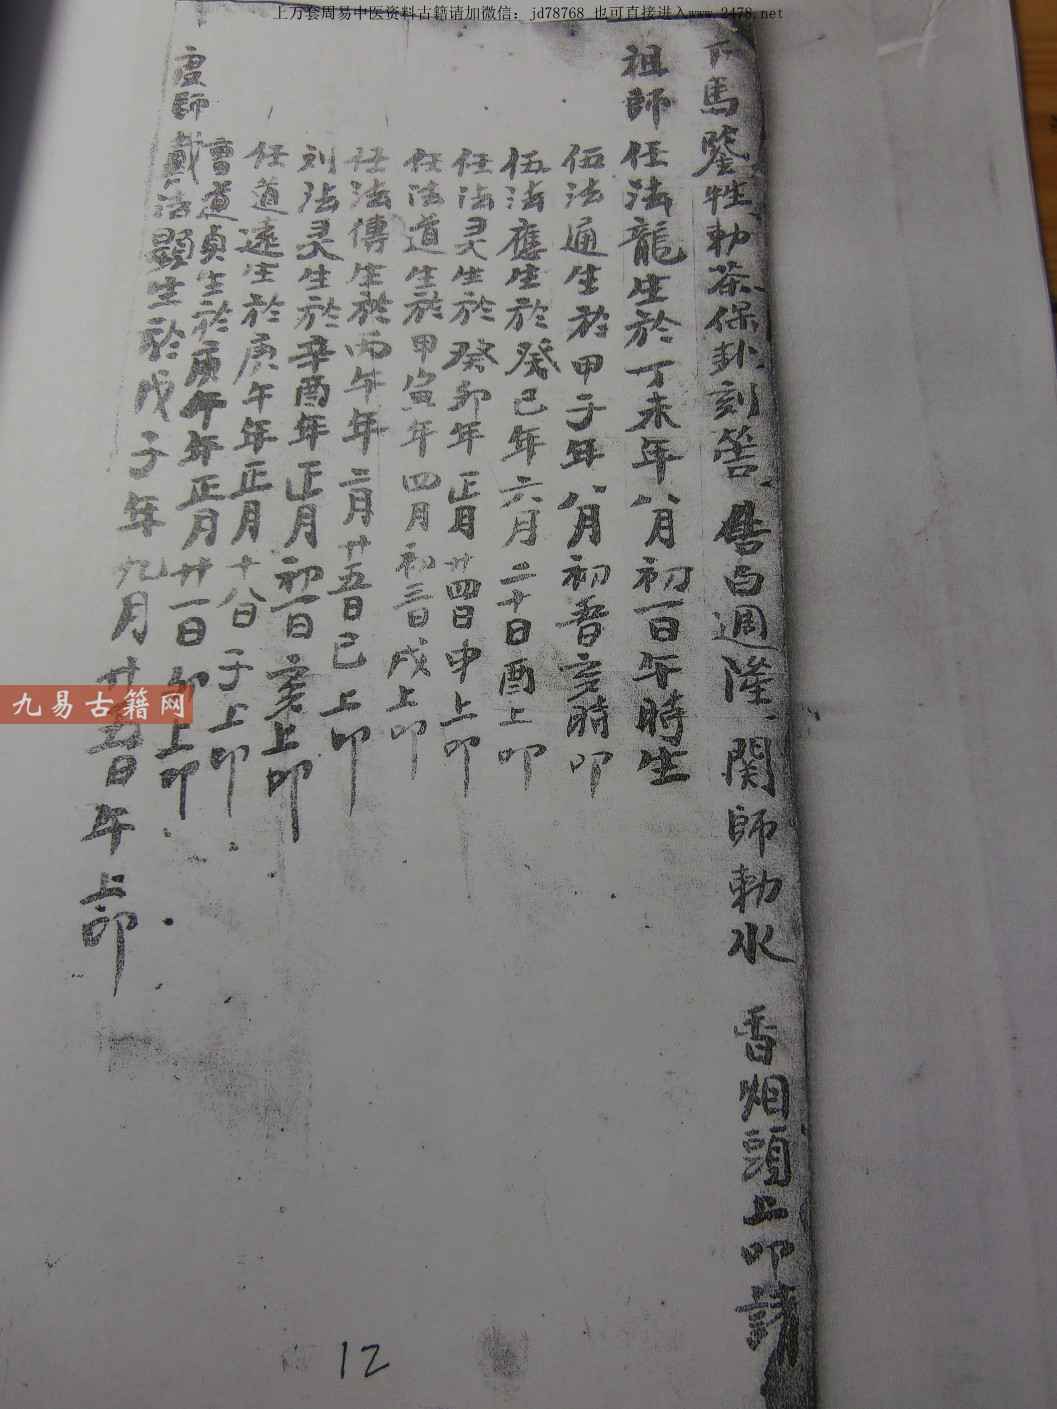 上万套周易中医资料古籍请加微信：jd78768 也可直接进入www.2478.net
下馬鑒牲勅茶保卦刻筈、白週隆、関師勅水 香烟頭上叩請
祖師任法龍生於丁未年八月初一日午時生
伍法通生於甲子年八月初五日亥時叩
伍法應生於癸已年六月二十日酉上叩
任法灵生於癸卯年正月廿四日申上叩
任法道生於甲寅年四月初三日戌上叩
任法傳生於丙午年二月廿五日已上叩
刘法灵生於辛酉年正月初一日亥上叩
任道遠生於庚午年正月十八日子上叩
曹道貞生於庚午年正月廿一日卯上叩
度師戴法顕生於戊子年九月廿五日午上叩
九易古籍网
12